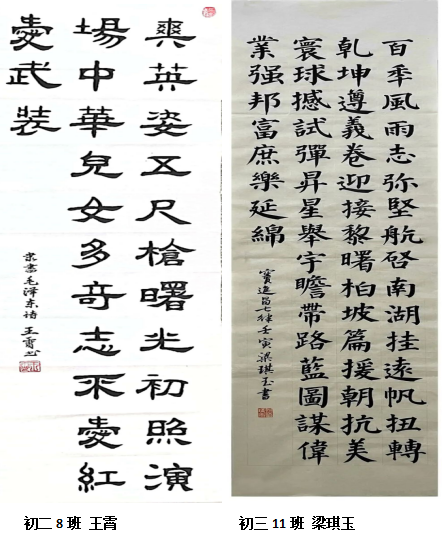 爽英姿五尺槍曙光初照演
場中華兒女多奇志不愛紅
愛武裝
隶書毛泽东诗 王霄书
百秊風雨志弥堅航启南湖挂遠帆扭轉
乾坤遵義卷迎接黎曙柏坡篇援朝抗美
寰球撼試彈昇星舉宇瞻帶路藍圖謀偉
業强邦富庶樂延綿
竇進昌七律壬寅梁琪玉書
初二8班 王霄
初三11班 梁琪玉